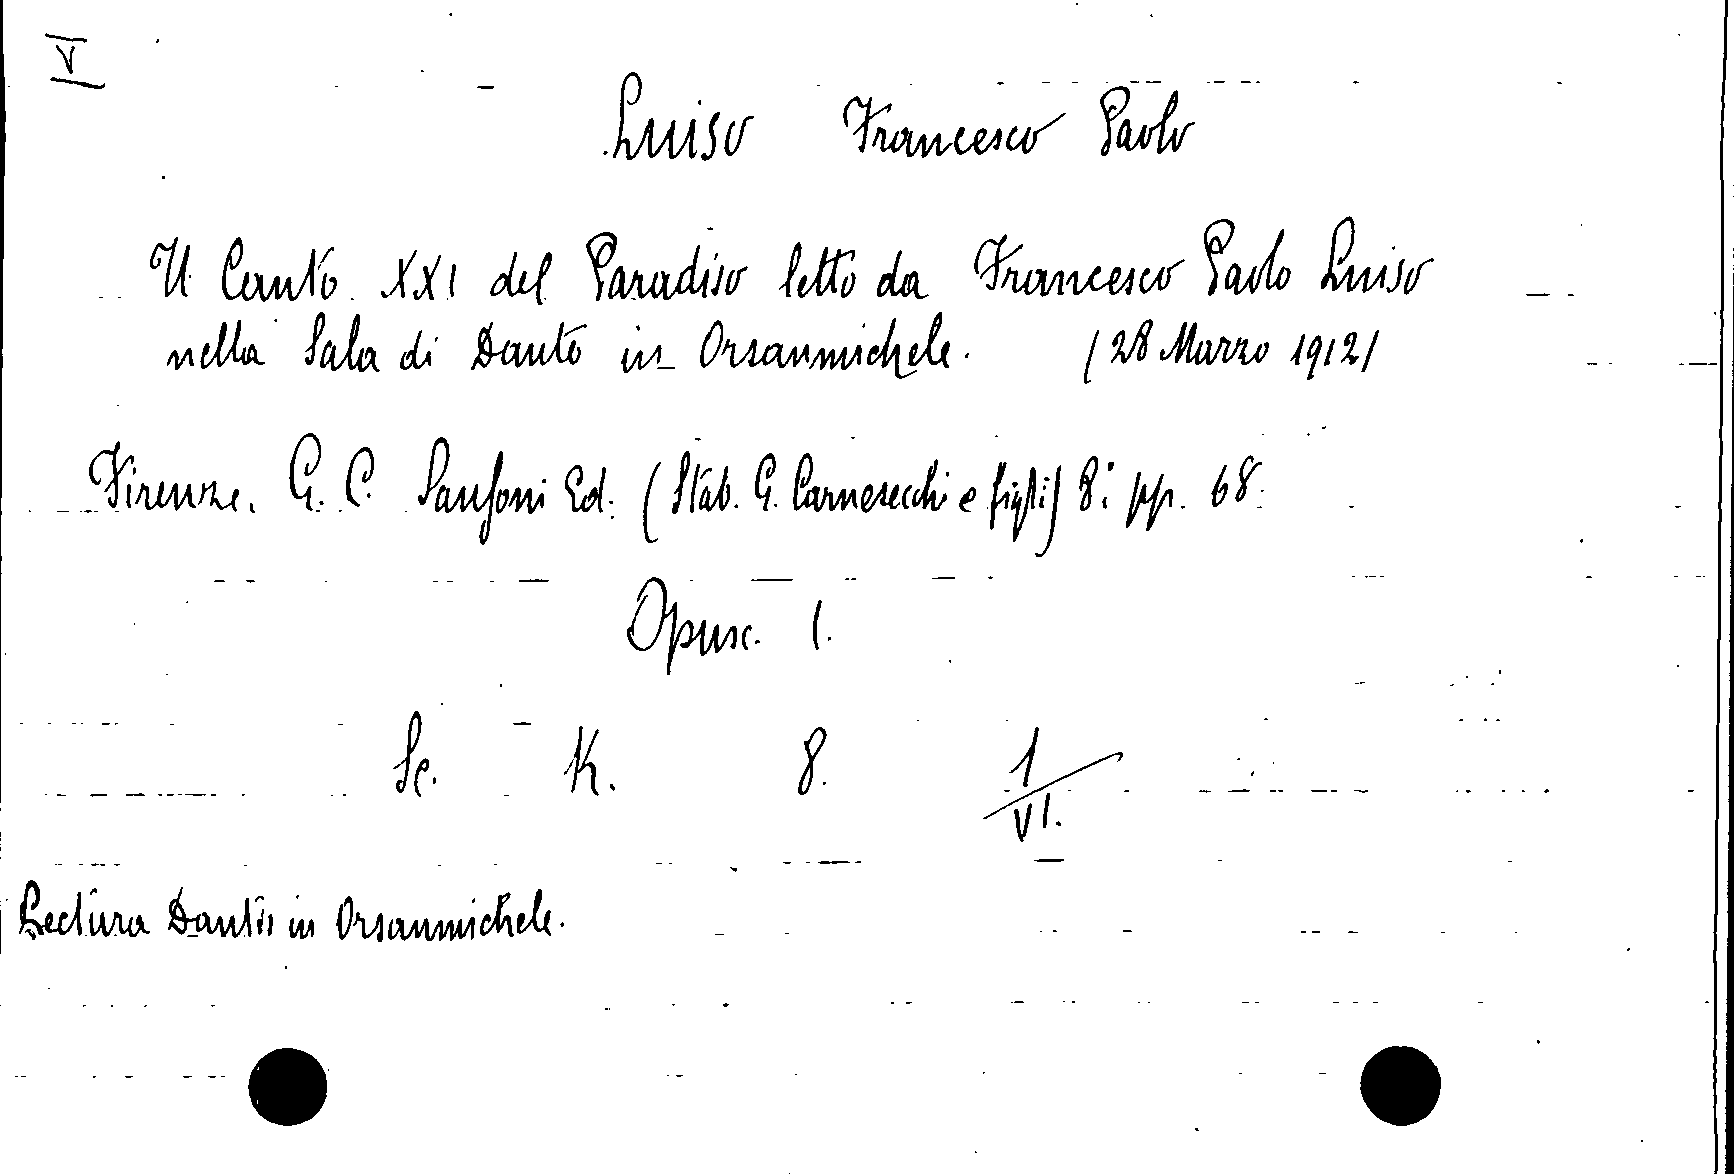 V
Luiso Francesco Paolo
Il Canto XXI del Paradiso letto da Francesco Paolo Luiso
nella Sala di Dante in Orsanmichele. (28 Marzo 1912)
Firenze. G. C. Sansoni Ed. (Stab. G. Carnesecchi e figli) 8° pp. 68.
Opusc. 1.
Sc. K. 8. 1/VI.
Lectura Dantis in Orsanmichele.